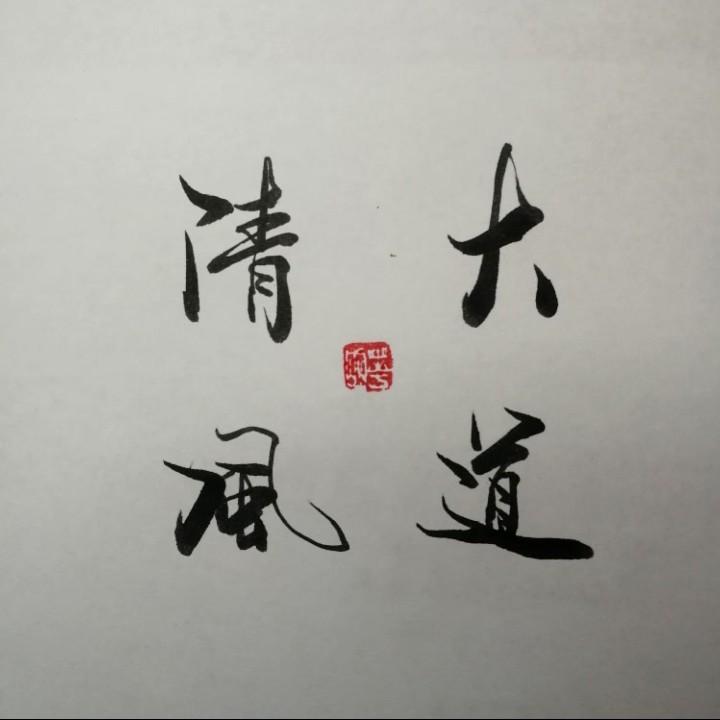 大道
清風